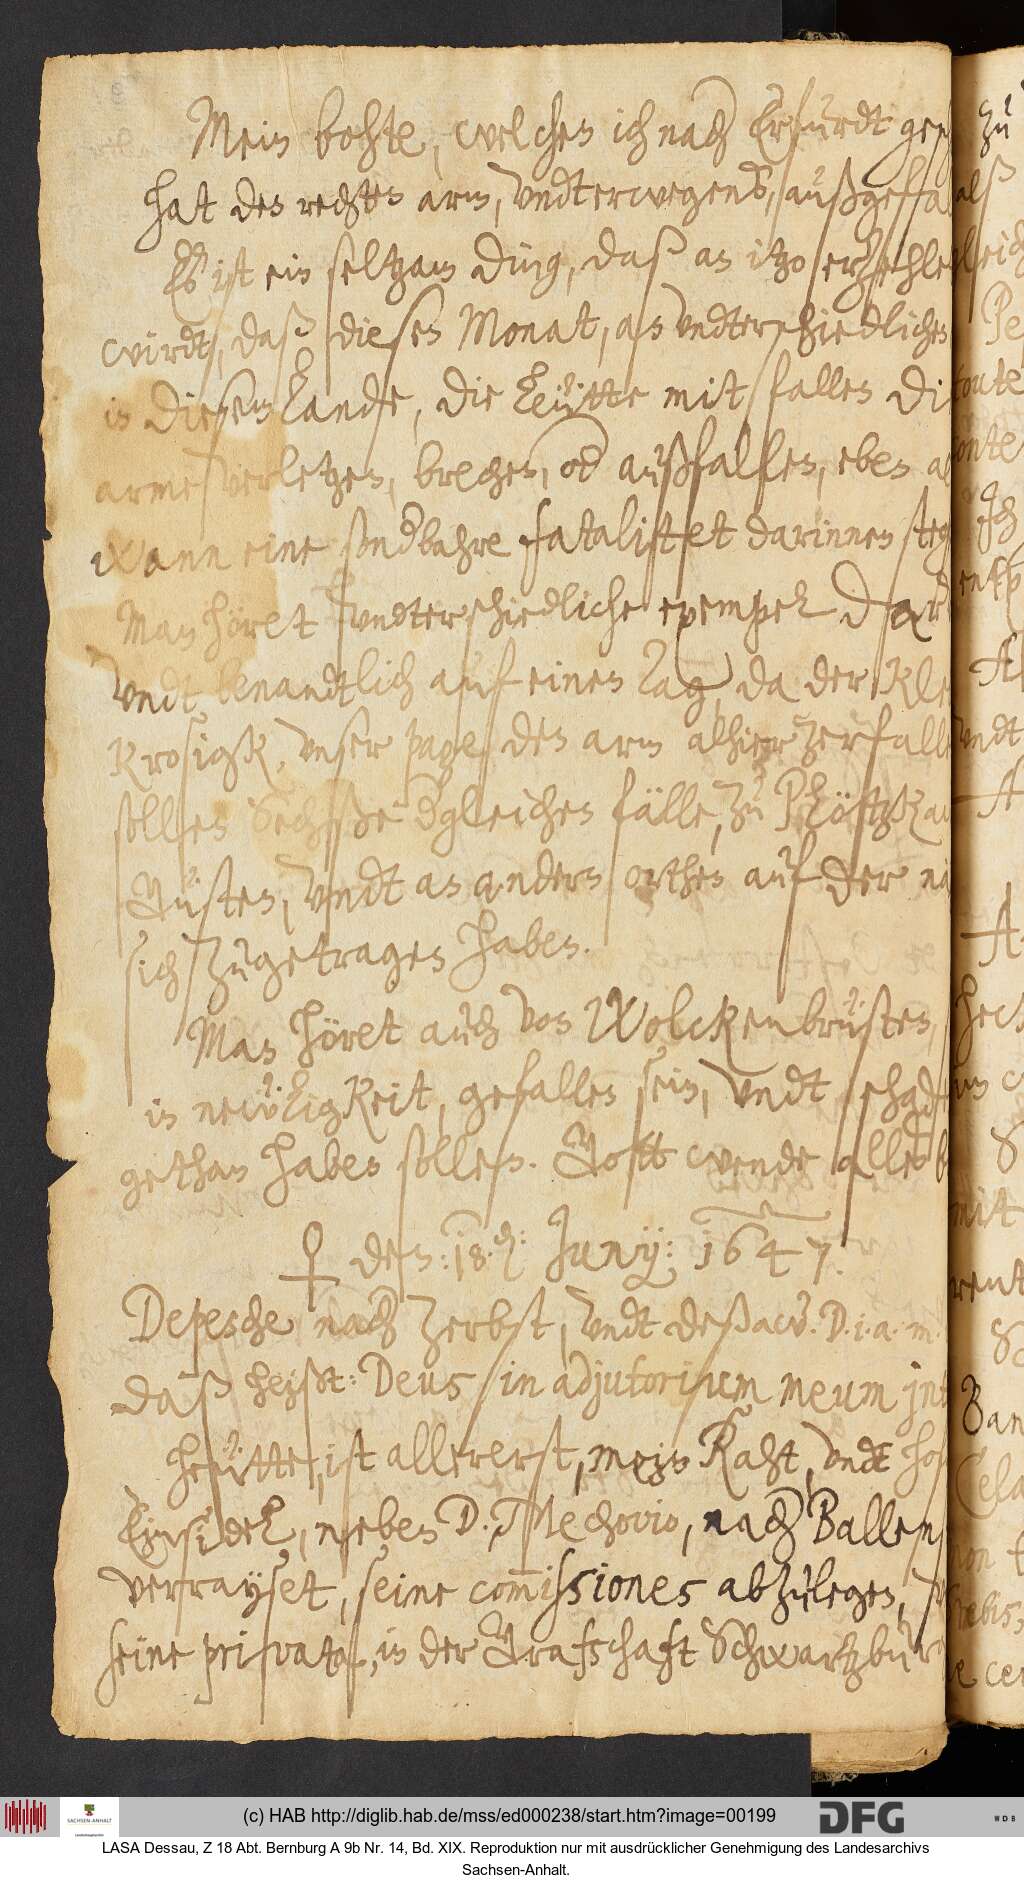 Mein bohte, welchen ich nach Erfurdt ge
hat den rechten arm, vndterwegens, außgefa
Es ist ein seltzam ding, daß an itzo erzehle
wirdt, daß diesen Monat, an vndterschiedlichen
in diesem Lande, die Leütte mit fallen di
arme verletzen, brechen, od außfallen, eben a
Wann eine sondbahre fatalitet darinnen ste
Man höret vndterschiedliche exempel dar
vndt benandtlich auf einen Tag, da der Kle
Krosigk, vnser page den arm alhier zerfalle
sollen Sechße dgleichen fälle, zu Plötzka
Güsten, vndt an andern orthen auf der nä
sich zugetragen haben.
Man höret auch von Wolckenbrüsten,
in newligkeit, gefallen sein, vndt schad
gethan haben sollen. Gott wende alles b
♀ den: 18. Junij: 1647.
Depesche nach Zerbst, vndt deßaw. D. i. a. m.
daß heißt: Deus in adjutorium meum int
Heütte, ist allererst, mein Raht, vndt hof
Einsidel, neben D. Mechovio, nach Ballens
verrayset, seine commissiones abzulegen,
seine privata, in der Grafschaft Schwartzbur
zu
alß
Pe
toute
conte
Ich
vndt
mit
(c) HAB http://diglib.hab.de/mss/ed000238/start.htm?image=00199
SACHSEN-ANHALT
DFG
WDB
LASA Dessau, Z 18 Abt. Bernburg A 9b Nr. 14, Bd. XIX. Reproduktion nur mit ausdrücklicher Genehmigung des Landesarchivs
Sachsen-Anhalt.